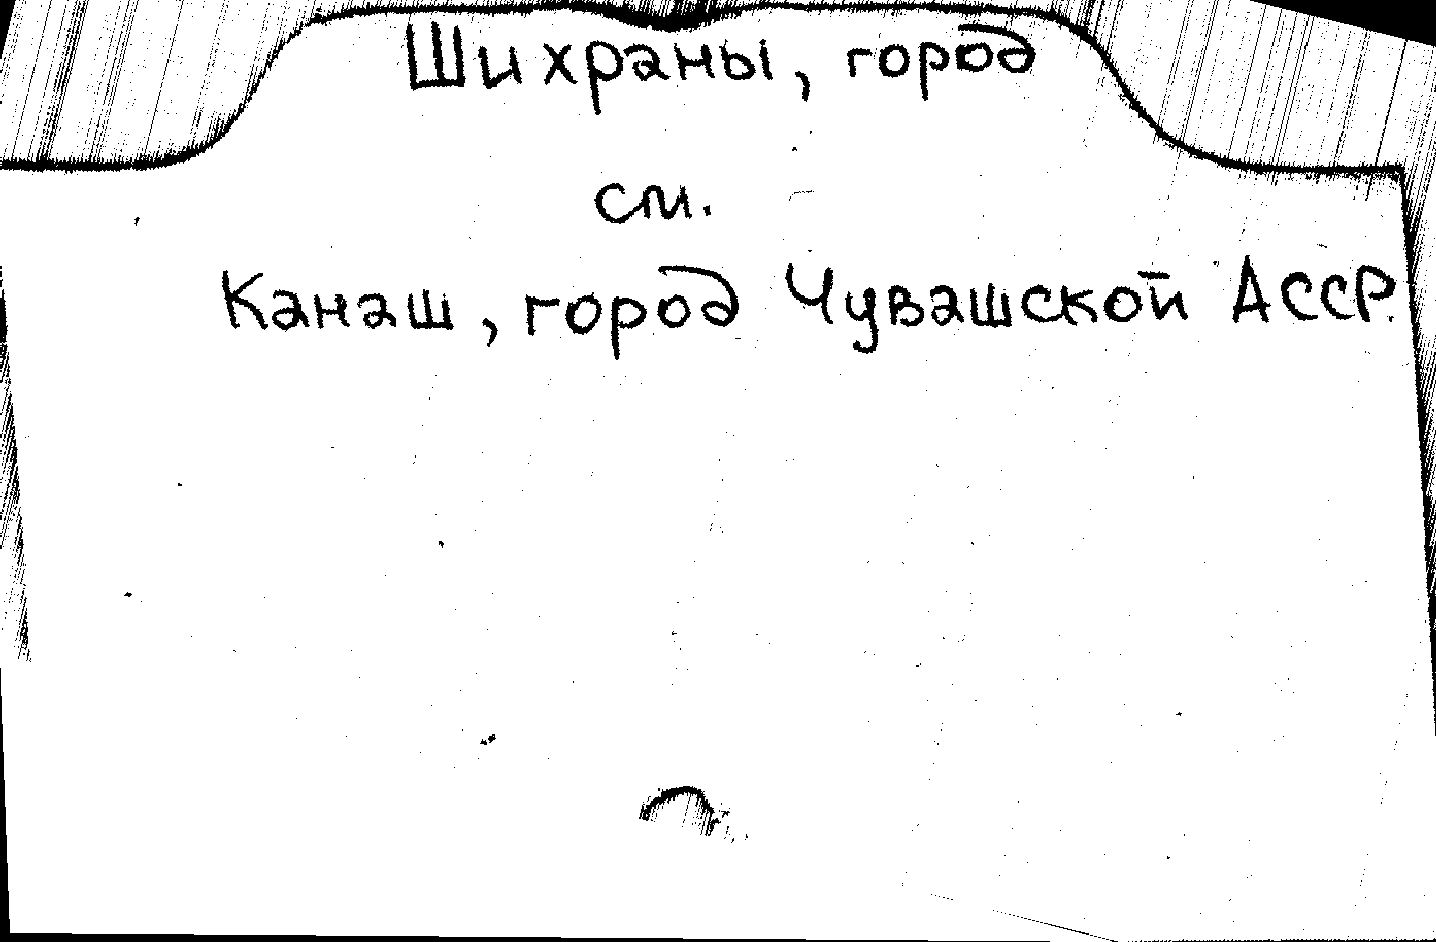 Шихраны, город
см.
Канаш, город Чувашской АССР.